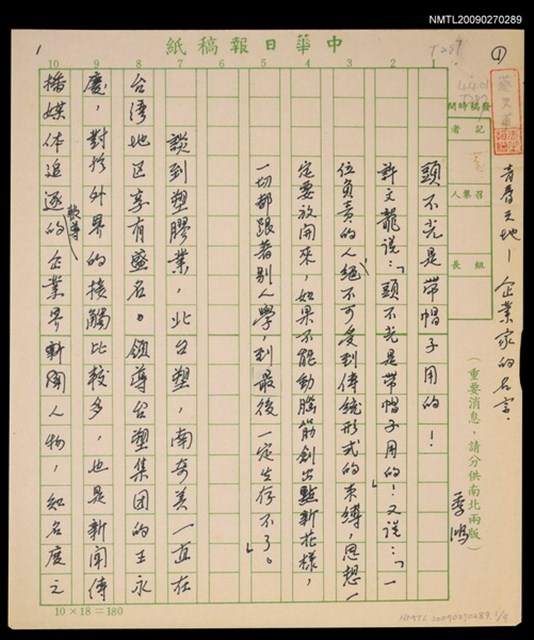 NMTL20090270289
中華日報稿紙
T287
①
1
發稿時間
記者
召集人
組長
(重要消息，請分供南北兩版)
青春天地－企業家的名言．
季鴻
頭不光是帶帽子用的！
許文龍說：「頭不光是帶帽子用的！」又說：「一
位負責的人絕不可受到傳統形式的束縛，思想一
定要放開來，如果不能動腦筋創出點新花樣，
一切都跟著別人學，到最後一定生存不了。」
談到塑膠業，北台塑，南奇美一直在
台灣地区享有盛名。領導台塑集团的王永
慶，對於外界的接觸比較多，也是新聞傳
播媒体追逐報導的企業界新聞人物，知名度之
1 2 3 4 5 6 7 8 9 10
10×18=180
NMTL20090270289. 1/9